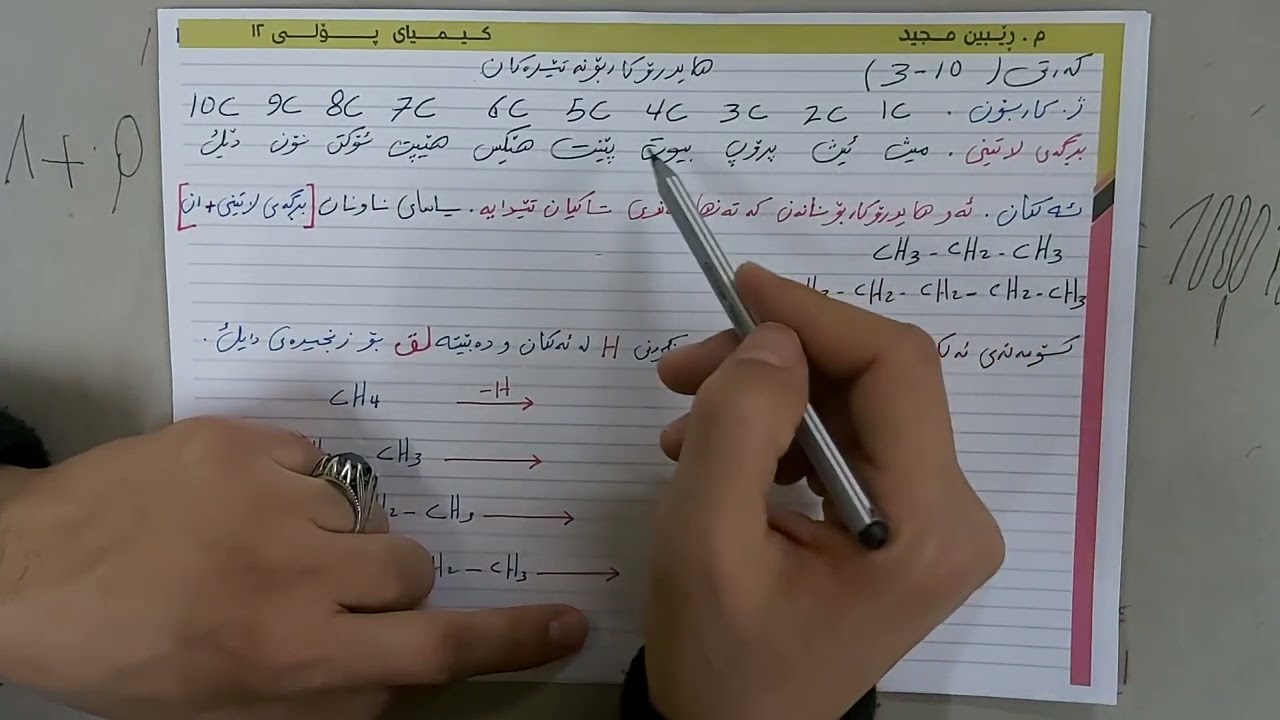 م. ڕێبین مجید کیمیای پۆلی ١٢
کەرتی (10-3) هایدرۆکاربۆنە تێرەکان
ژ. کاربۆن. 1C 2C 3C 4C 5C 6C 7C 8C 9C 10C
بڕگەی لاتینی. میث ئیث پرۆپ بیوت پێنت هێکس هێپت ئۆکت نۆن دێک
ئەلکان. ئەو هایدرۆکاربۆنانەن کە تەنها تاکیان تێدایە. یاسای ناونان [بڕگەی لاتینی + ان]
CH3 - CH2 - CH3
- CH2 - CH2 - CH2 - CH3
H لە ئەلکان و دەبێتە لق بۆ زنجیرەی
CH4 -H →
CH3 →
- CH3 →
- CH3 →
Λ + ρ